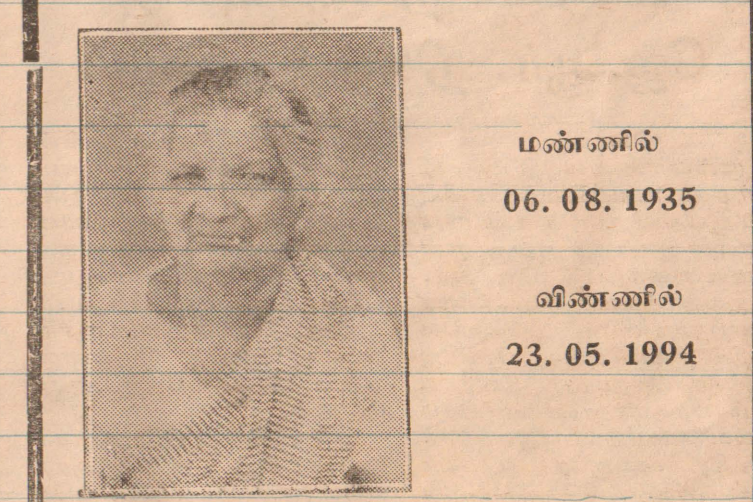 மண்ணில்
06. 08. 1935
விண்ணில்
23. 05. 1994